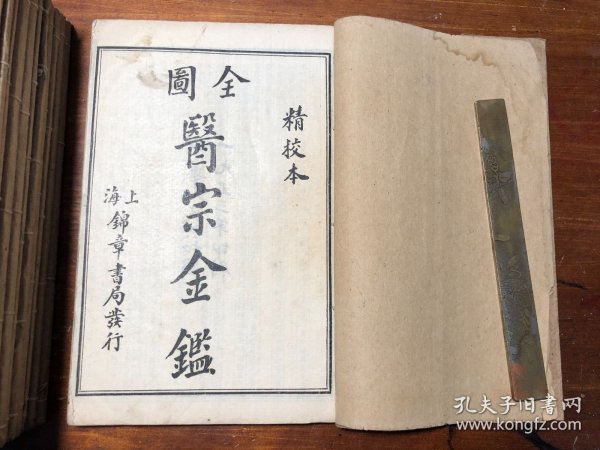 精校本
全圖
醫宗金鑑
上海
錦章書局發行
孔夫子旧书网
www.kongfz.com